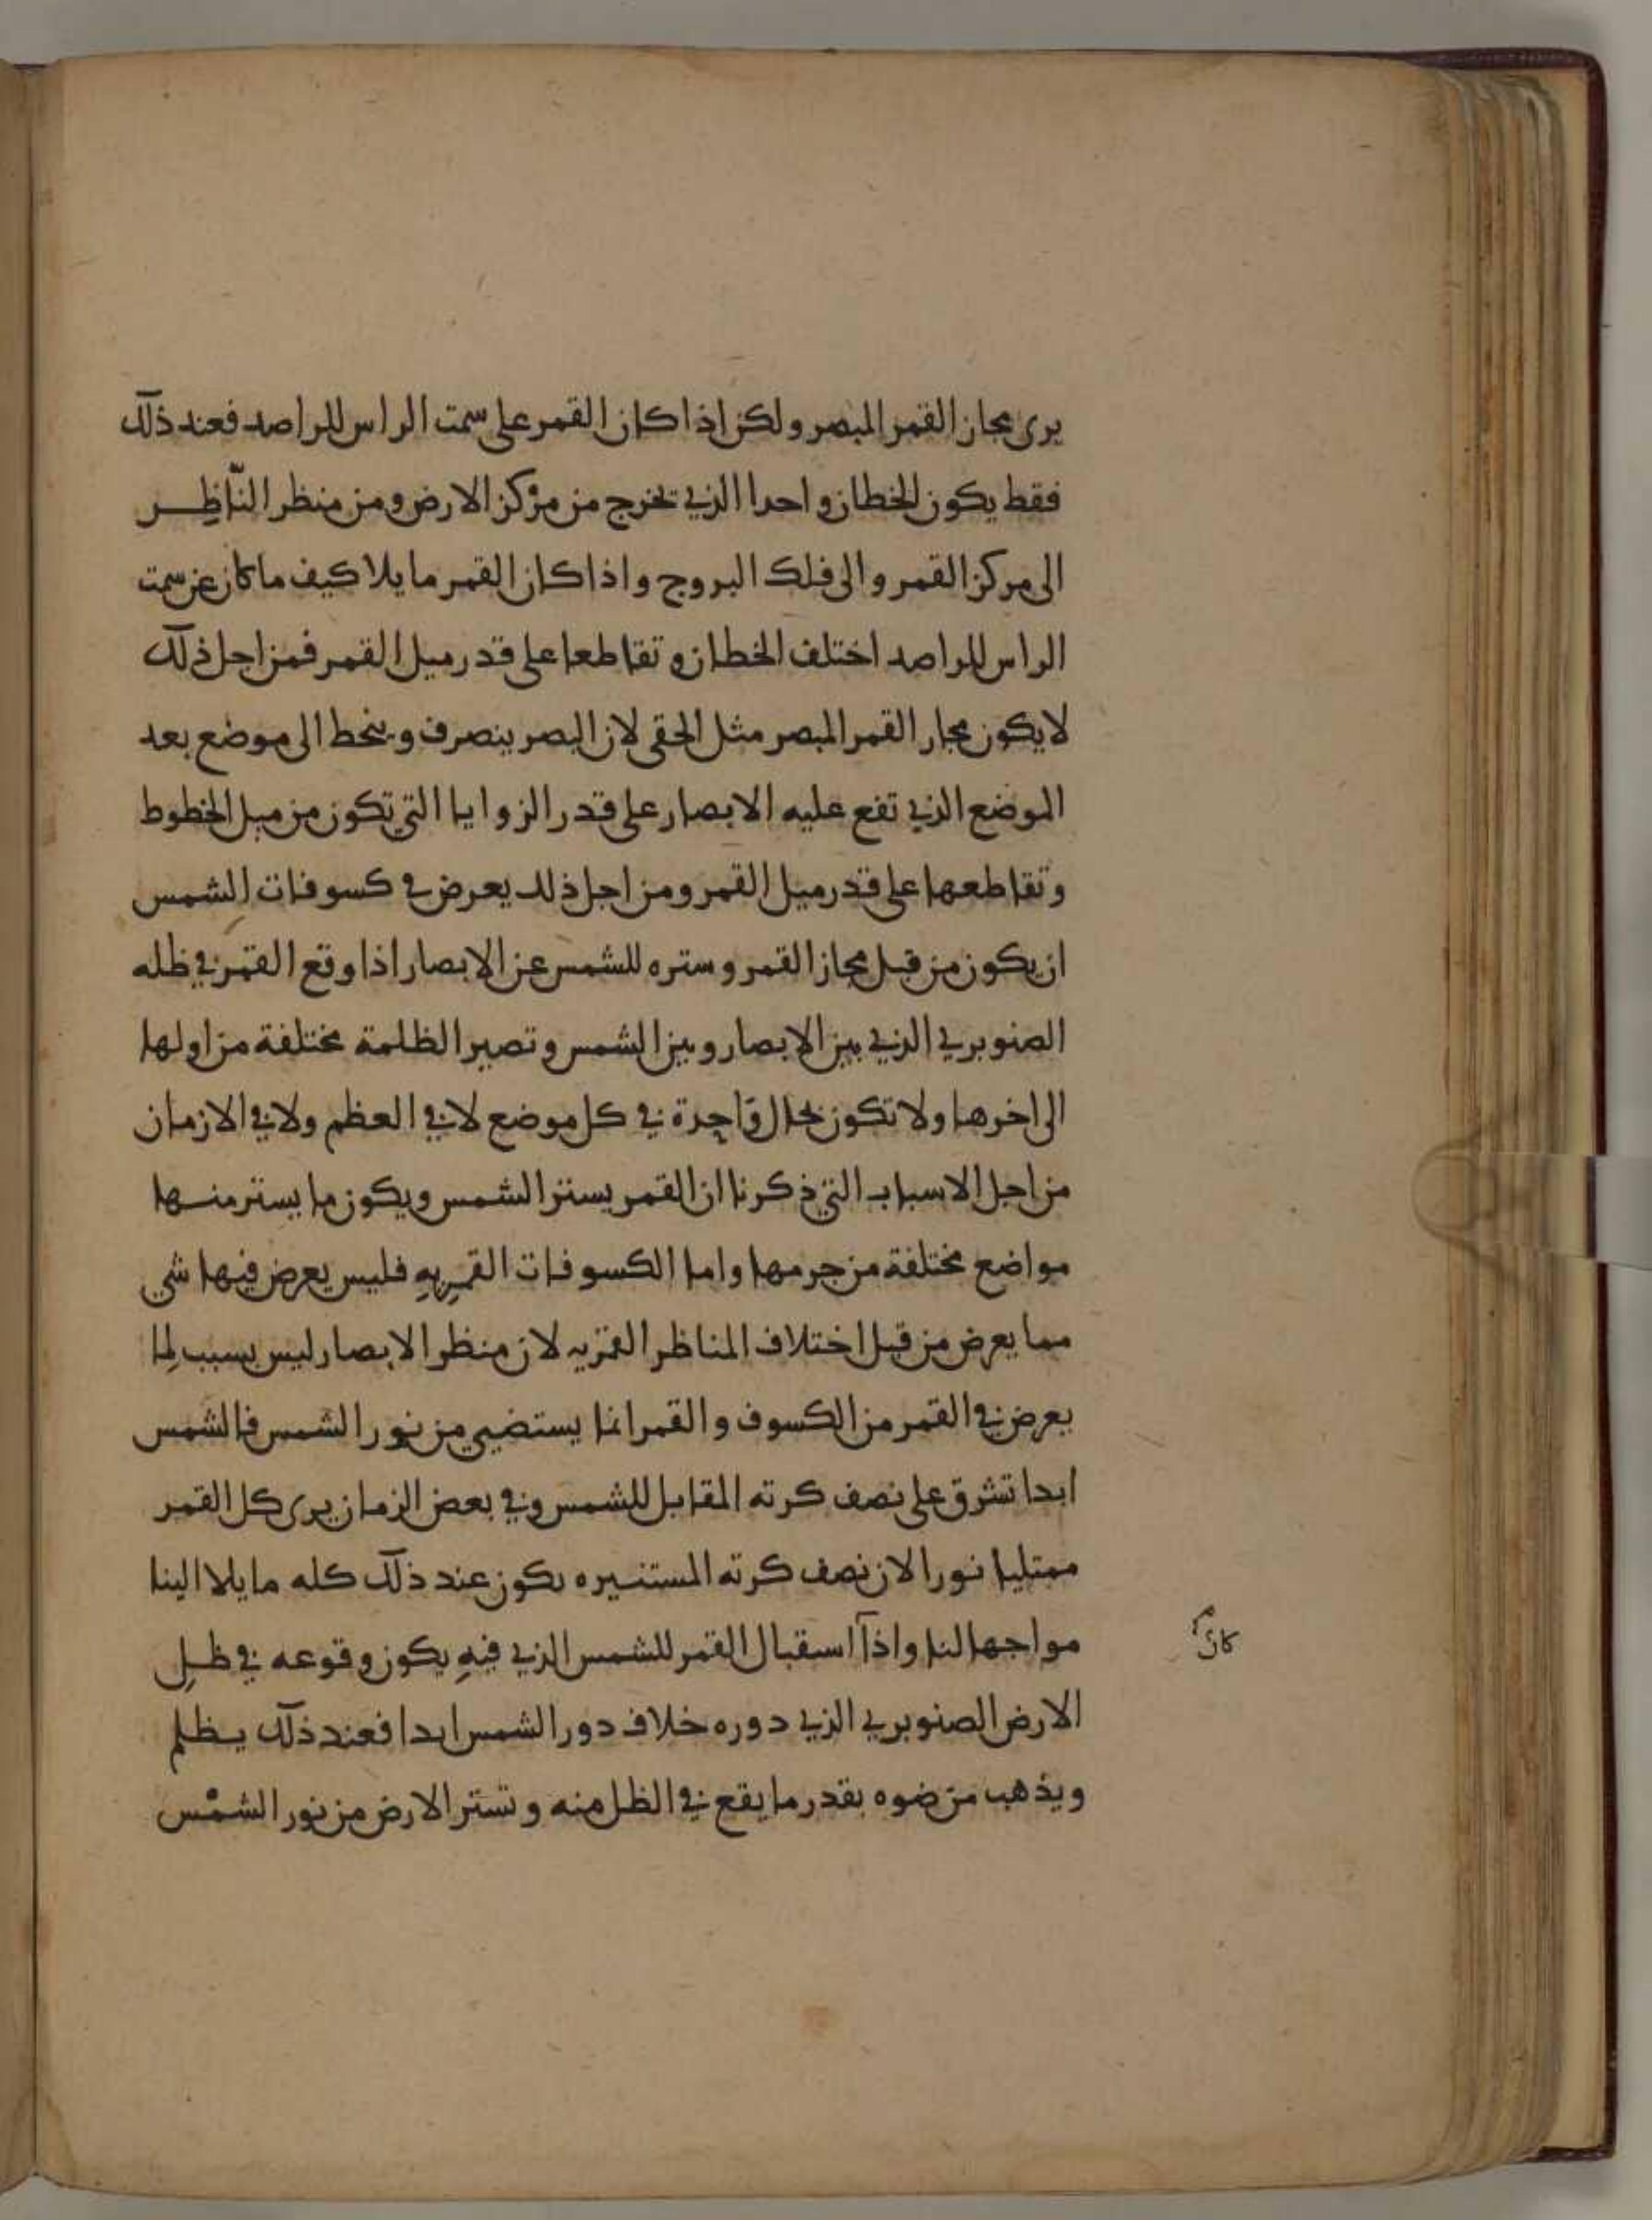 يرى مجاز القمر المبصر ولكن اذا كان القمر على سمت الراس للراصد فعند ذلك
فقط يكون الخطان واحدا الذي تخرج من مركز الارض ومن منظر النّاظِر
الى مركز القمر والى فلك البروج واذا كان القمر مايلا كيف ما كان عن سمت
الراس للراصد اختلف الخطان وتقاطعا على قدر ميل القمر فمن اجل ذلك
لا يكون مجاز القمر المبصر مثل الحقى لان البصر ينصرف وينحط الى موضع بعد
الموضع الذي تقع عليه الابصار على قدر الزوايا التي تكون من ميل الخطوط
وتقاطعها على قدر ميل القمر ومن اجل ذلك يعرض في كسوفات الشمس
ان يكون من قبل مجاز القمر وستره للشمس عن الابصار اذا وقع القمر في ظله
الصنوبري الذي بين الابصار وبين الشمس وتصير الظلمة مختلفة من اولها
الى اخرها ولا تكون بحال واحدة في كل موضع لا في العظم ولا في الازمان
من اجل الاسباب التي ذكرنا ان القمر يستر الشمس ويكون ما يستر منها
مواضع مختلفة من جرمها واما الكسوفات القمرِيهِ فليس يعرض فيها شي
مما يعرض من قبل اختلاف المناظر القمريه لان منظر الابصار ليس بسبب لِما
يعرض في القمر من الكسوف والقمر انما يستضيي من نور الشمس فالشمس
ابدا تشرق على نصف كرته المقابل للشمس وفي بعض الزمان يرى كل القمر
ممتليا نورا لان نصف كرته المستنيره يكون عند ذلك كله مايلا الينا
مواجها لنا واذا استقبال القمر للشمس الذي فيهِ يكون وقوعه في ظلِ
كان
الارض الصنوبري الذي دوره خلاف دور الشمس ابدا فعند ذلك يظلم
ويذهب من ضوه بقدر ما يقع في الظل منه وتستر الارض من نور الشمْس